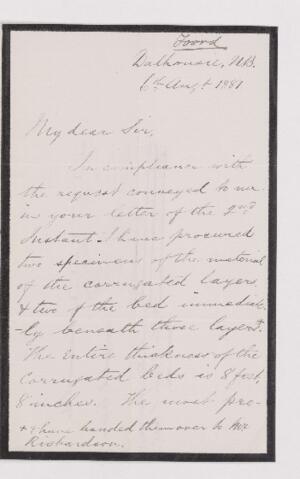 Foord
Dalhousie, N.B.
6th Augt 1881
My dear Sir,
In compliance with
the request conveyed to me
in your letter of the 2nd
Instant. I have procured
two specimens of the material
of the corrugated layers,
& two of the bed immediate-
-ly beneath those layers+.
The entire thickness of the
corrugated beds is 8 feet,
8 inches. The most pro-
+ & have handed them over to Mr.
Richardson.